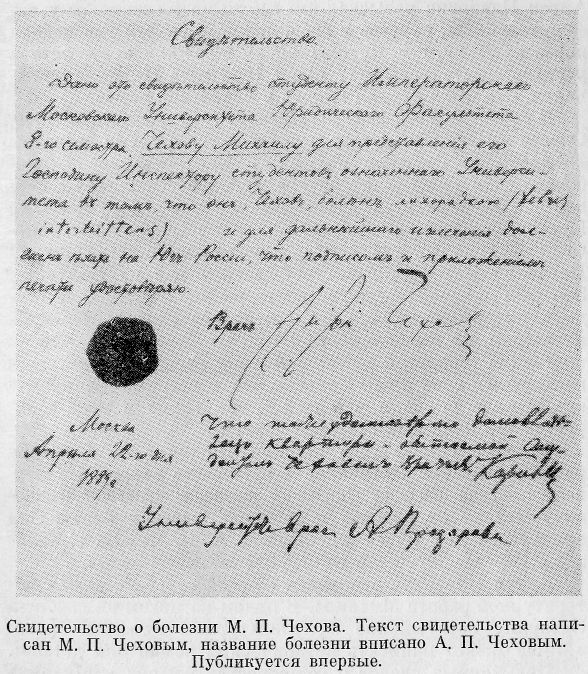 Свидѣтельство.
Дано это свидѣтельство студенту Императорскаго
Московскаго Университета Юридическаго Факультета
8-го семестра Чехову Михаилу для представленія его
Господину Инспектору студентовъ означеннаго Универси-
тета въ томъ что онъ, Чеховъ, боленъ лихорадкою (febris
intermittens) и для дальнѣйшаго излеченія дол-
женъ ѣхать на Югъ Россіи, что подписомъ и приложеніемъ
печати удостовѣряю.
Врачъ Антон Чехов
Москва
Апрѣля 22-го дня
188 г
что
квартиры
врачемъ
Университ врач А
Свидетельство о болезни М. П. Чехова. Текст свидетельства напи-
сан М. П. Чеховым, название болезни вписано А. П. Чеховым.
Публикуется впервые.